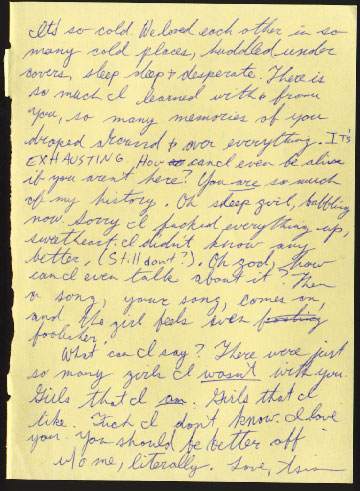 It's so cold. We loved each other in so
many cold places, huddled under
covers, sleep deep & desperate. There is
so much I learned with & from
you, so many memories of you
draped around & over everything. IT'S
EXHAUSTING, How can I even be alive
if you aren't here? You are so much
of my history. Oh sleep girl, babbling
now. Sorry I fucked everything up,
sweetheart. I didn't know any
better, (Still don't?). Oh god, how
can I even talk about it? Then
a song, your song, comes on,
and the girl feels even
foolisher.
What can I say? There were just
so many girls I wasn't with you.
Girls that I am. Girls that I
like. I don't know. I love
you. You should be better off
w/o me, literally. Love,